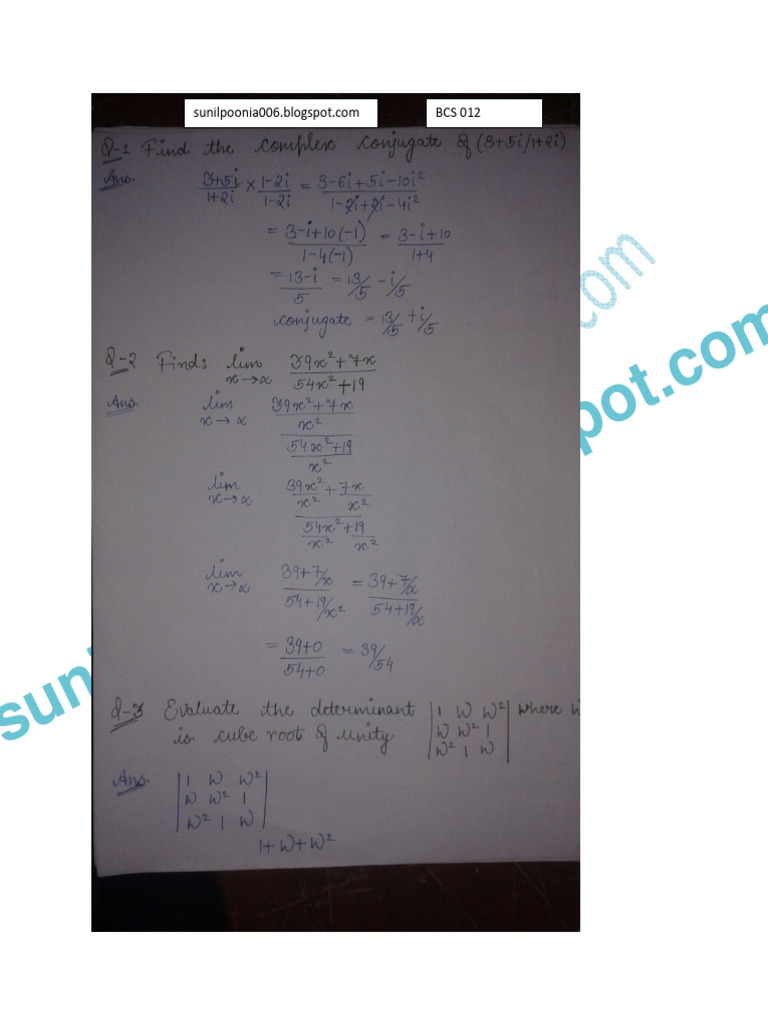 sunilpoonia006.blogspot.com
BCS 012
Q-1 Find the complex conjugate of (3+5i/1+2i)
Ans. 3+5i/1+2i × 1-2i/1-2i = 3-6i+5i-10i²/1-2i+2i-4i²
= 3-i+10(-1)/1-4(-1) = 3-i+10/1+4
= 13-i/5 = 13/5 - i/5
conjugate = 13/5 + i/5
Q-2 Find: lim x→∞ 39x²+7x/54x²+19
Ans. lim x→∞ 39x²+7x/x² / 54x²+19/x²
lim x→∞ 39x²/x² + 7x/x² / 54x²/x² + 19/x²
lim x→∞ 39+7/x / 54+19/x² = 39+7/∞ / 54+19/∞
= 39+0/54+0 = 39/54
Q-3 Evaluate the determinant |1 W W²| where W
|W W² 1|
is cube root of unity |W² 1 W|
Ans. |1 W W²|
|W W² 1|
|W² 1 W|
1+W+W²
sun
pot.com
com